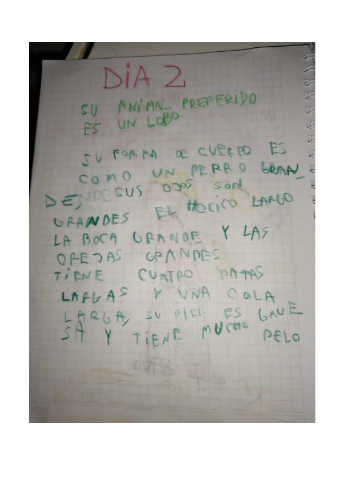 DIA 2
SU ANIMAL PREFERIDO
ES UN LOBO
SU FORMA DE CUERPO ES
COMO UN PERRO GRAN_
DE, SUS OJOS SON
GRANDES EL HOCICO LARGO
LA BOCA GRANDE Y LAS
OREJAS GRANDES
TIENE CUATRO PATAS
LARGAS Y UNA COLA
LARGA, SU PIEL ES GRUE
SA Y TIENE MUCHO PELO